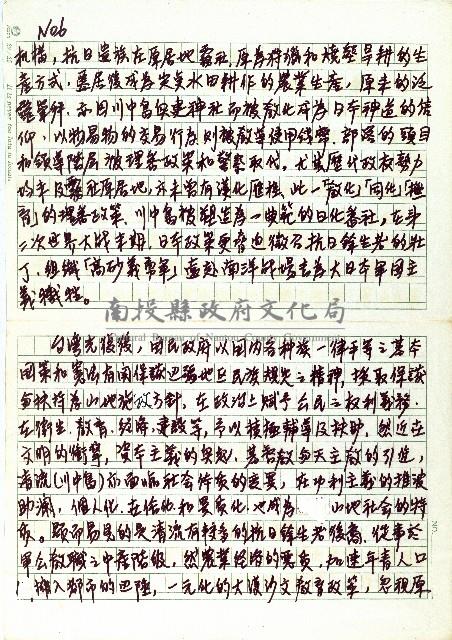 No6
機構，抗日遺族在原居地霧社，原為狩獵和燒墾旱耕的生
產方式，遷居後成為定員水田耕作的農業生產，原來的泛
靈崇拜，亦因川中島保建神社而被教化成為日本神道的信
仰，以物易物的交易行為則被教導使用錢幣。部落的頭目
和領導階層被理番政策和警察取代，尤其歷代政权勢力
的未及霧社原居地，亦未曾有漢化歷程，此一「教化」「同化」「撫
育」的理番政策，川中島被塑造為一典範的日化番社，在第
二次世界大战末期，日本政策更脅迫徵召抗日餘生者的壯
丁，組織「高砂義勇軍」遠赴南洋战場去為大日本軍國主
義犧牲。
南投縣政府文化局
Cultural Bureau of Nantou County Government
台灣光復後，國民政府以國內各種族一律平等之基本
國策和憲法有關保障边疆地區民族規定之精神，採取保護
與扶持為山地施政方針，在政治上賦予公民之权利義務
在衛生，教育，經濟，建設等，予以積極輔導及扶助，然近在
文明的衝擊，資本主義的興起，基督教與天主教的引進，
清流(川中島)亦面臨社会体质的变異，在功利主義的推波
助瀾，個人化、在俗化和異质化地成為 山地社会的特
质。顯而易見的是清流有較多的抗日餘生者後裔，從事於
軍公教職之中產階級，然農業經濟的惡质，加速年青人口
擁入都市的迴陸，一元化的大漢沙文教育政策，忽視原